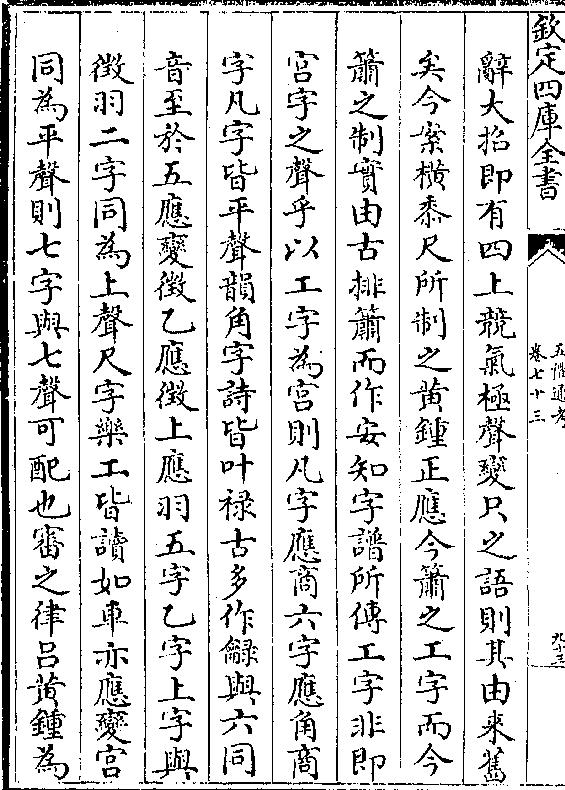 欽定四庫全書
五禮通考
卷七十三
辭大招即有四上競氣極聲變只之語則其由來舊
矣今案横黍尺所制之黄鍾正應今簫之工字而今
簫之制實由古排簫而作安知字譜所傳工字非即
宮字之聲乎以工字為宮則凡字應商六字應角商
字凡字皆平聲韻角字詩皆叶祿古多作龣與六同
音至於五應變徵乙應徵上應羽五字乙字上字與
徵羽二字同為上聲尺字樂工皆讀如車亦應變宮
同為平聲則七字與七聲可配也審之律吕黄鍾為